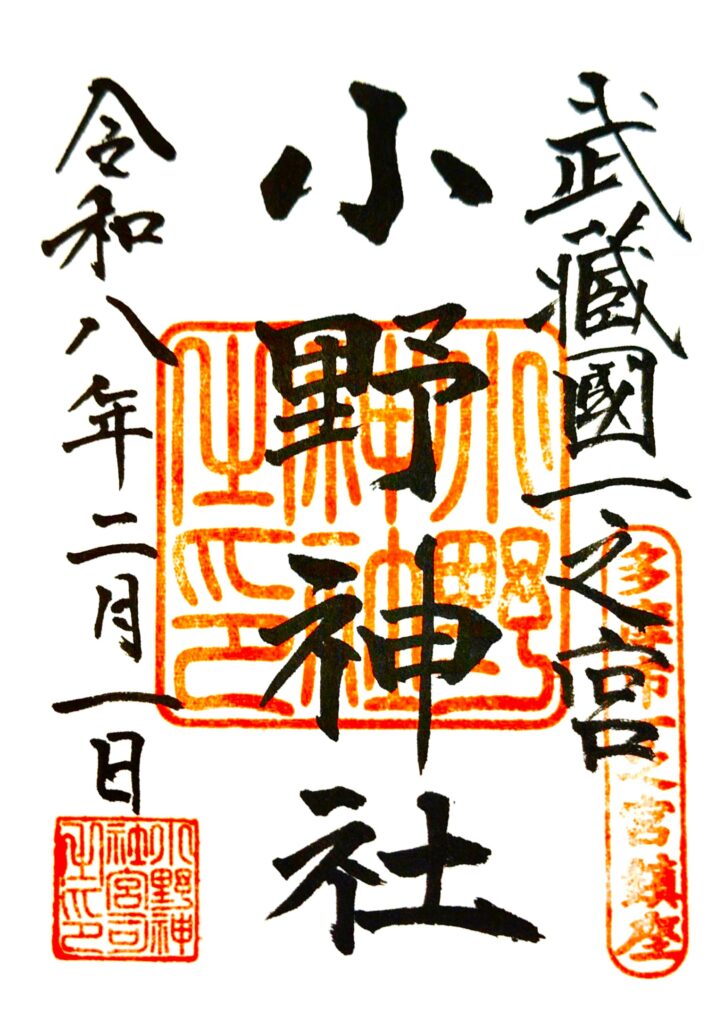 武藏國一之宮
多摩市一之宮鎮座
小野神社
小野神社之印
令和八年二月一日
小野神社宮司之印